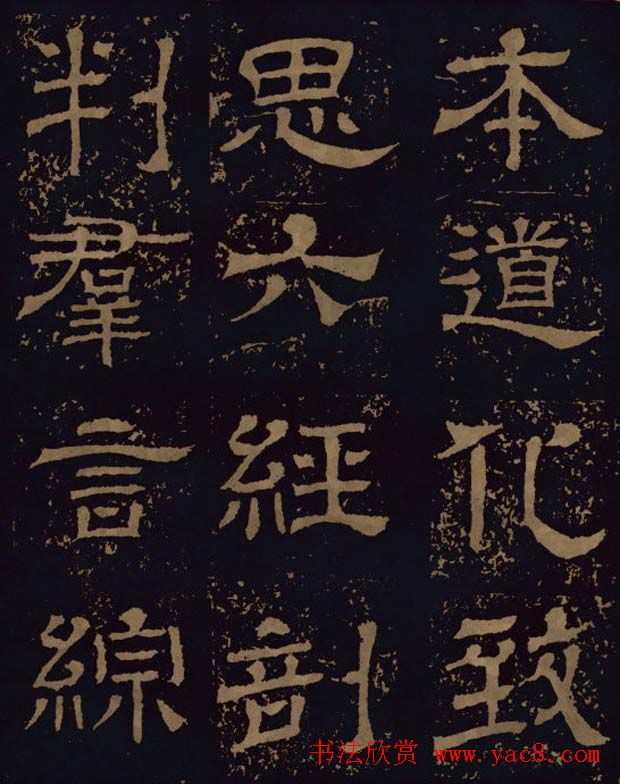 本道化致
思六經剖
判羣言綜
书法欣赏 www.yac8.com